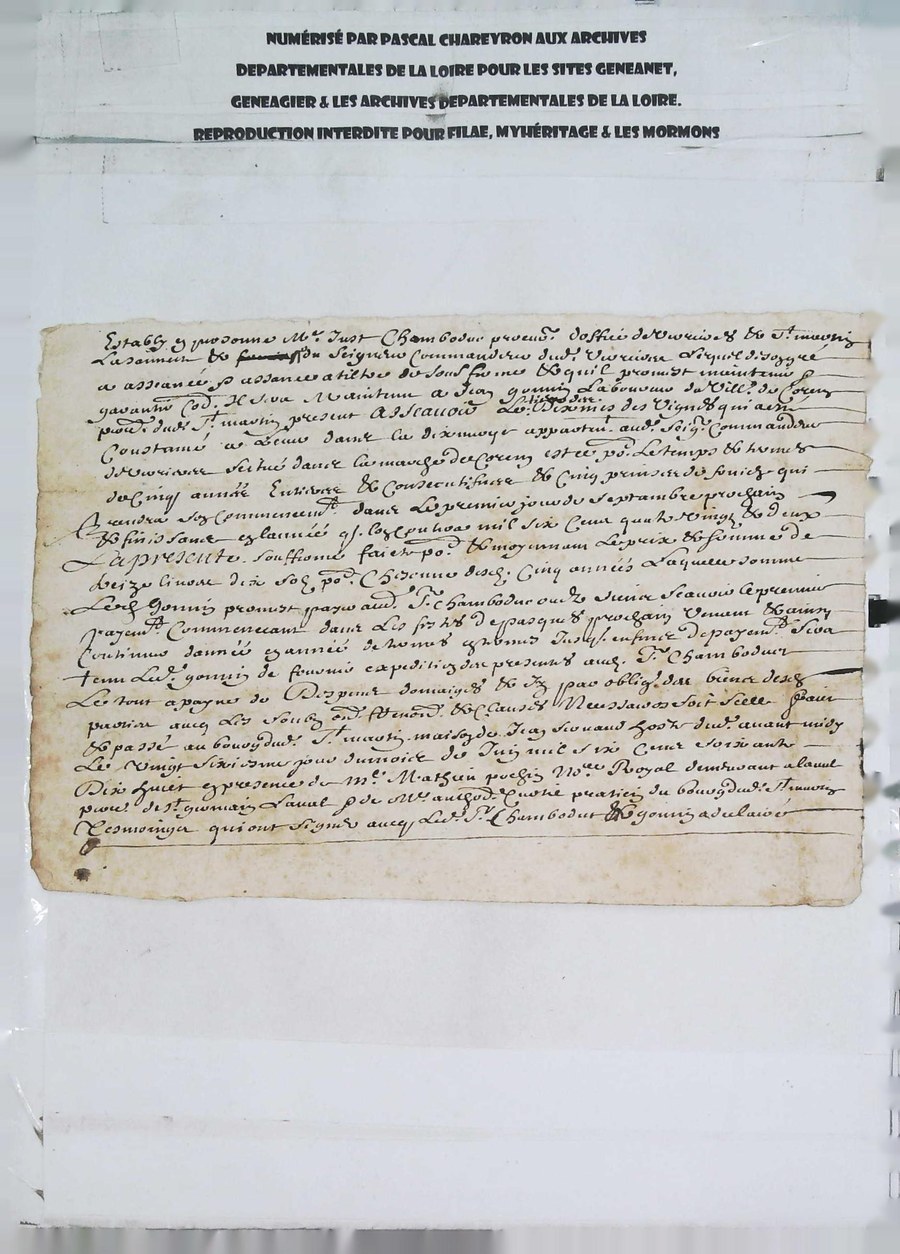 NUMÉRISÉ PAR PASCAL CHAREYRON AUX ARCHIVES
DEPARTEMENTALES DE LA LOIRE POUR LES SITES GENEANET,
GENEAGIER & LES ARCHIVES DEPARTEMENTALES DE LA LOIRE.
REPRODUCTION INTERDITE POUR FILAE, MYHÉRITAGE & LES MORMONS
Establÿ en personne Mr. Just Chamboduc procur. doffice de Verrieres & St. martin
La & du Seigneur Commandeur dud. Verriere Lequel de son gré
a assiancé & assance a tiltre de sousferme & quil promest maintenir &
garantir Il sera Maintenu a Jean gonnin Laboureur du Vill. de Corenÿ
parr. dud. St. martin present Assçauoir Le tiers des Dixmes des Vignes qui a
Coustumé a Leuer dans la dixmerye apparten. aud. Seigr. Commandeur
de Verriere scitué dans la marche de Corenÿ est ce po. Le temps & termes
de Cinq année Entieres & Consecutifues & Cinq prinses de fruicts qui
prendra son Commencemt. dans Le premier jour de Septembre prochain
& finissant en lannée qs. lon Contera mil six Cent quatre Vingt & deux
La presente sousferme faicte po. & moyennant Le prix & somme de
seize liures dix solz po. Chescune desd. Cinq années Laquelle somme
Led. Gonnin promest payer aud. Sr. Chamboduc ou & scauoir Le premier
payemt. Commencant dans Les festes de pasques prochain Venant & ainsy
Continuer dannée en année de termes en termes Jusqs. enfin de payemt. Sera
tenu Led. gonnin de fournir expedition des presentes aud. Sr. Chamboduc
Le tout a payne de Despens domaiges & par oblig. des biens desd.
parties aueq Les & Clauses Necessaires soit scellé faict
& passé au bourg dud. St. martin maison de Jean hoste dud. auant midy
Le Vingt sixiesme jour du mois de Juin mil six Cent soixante
Dix huict en presence de Me. Mathieu pochin Nore. Royal demeurant a laual
parr. de St. germain Laual & de Me. anthod. praticien du bourg dud. St. martin
Tesmoings qui ont signés aueq Led. Sr. Chamboduc & gonnin a declairé